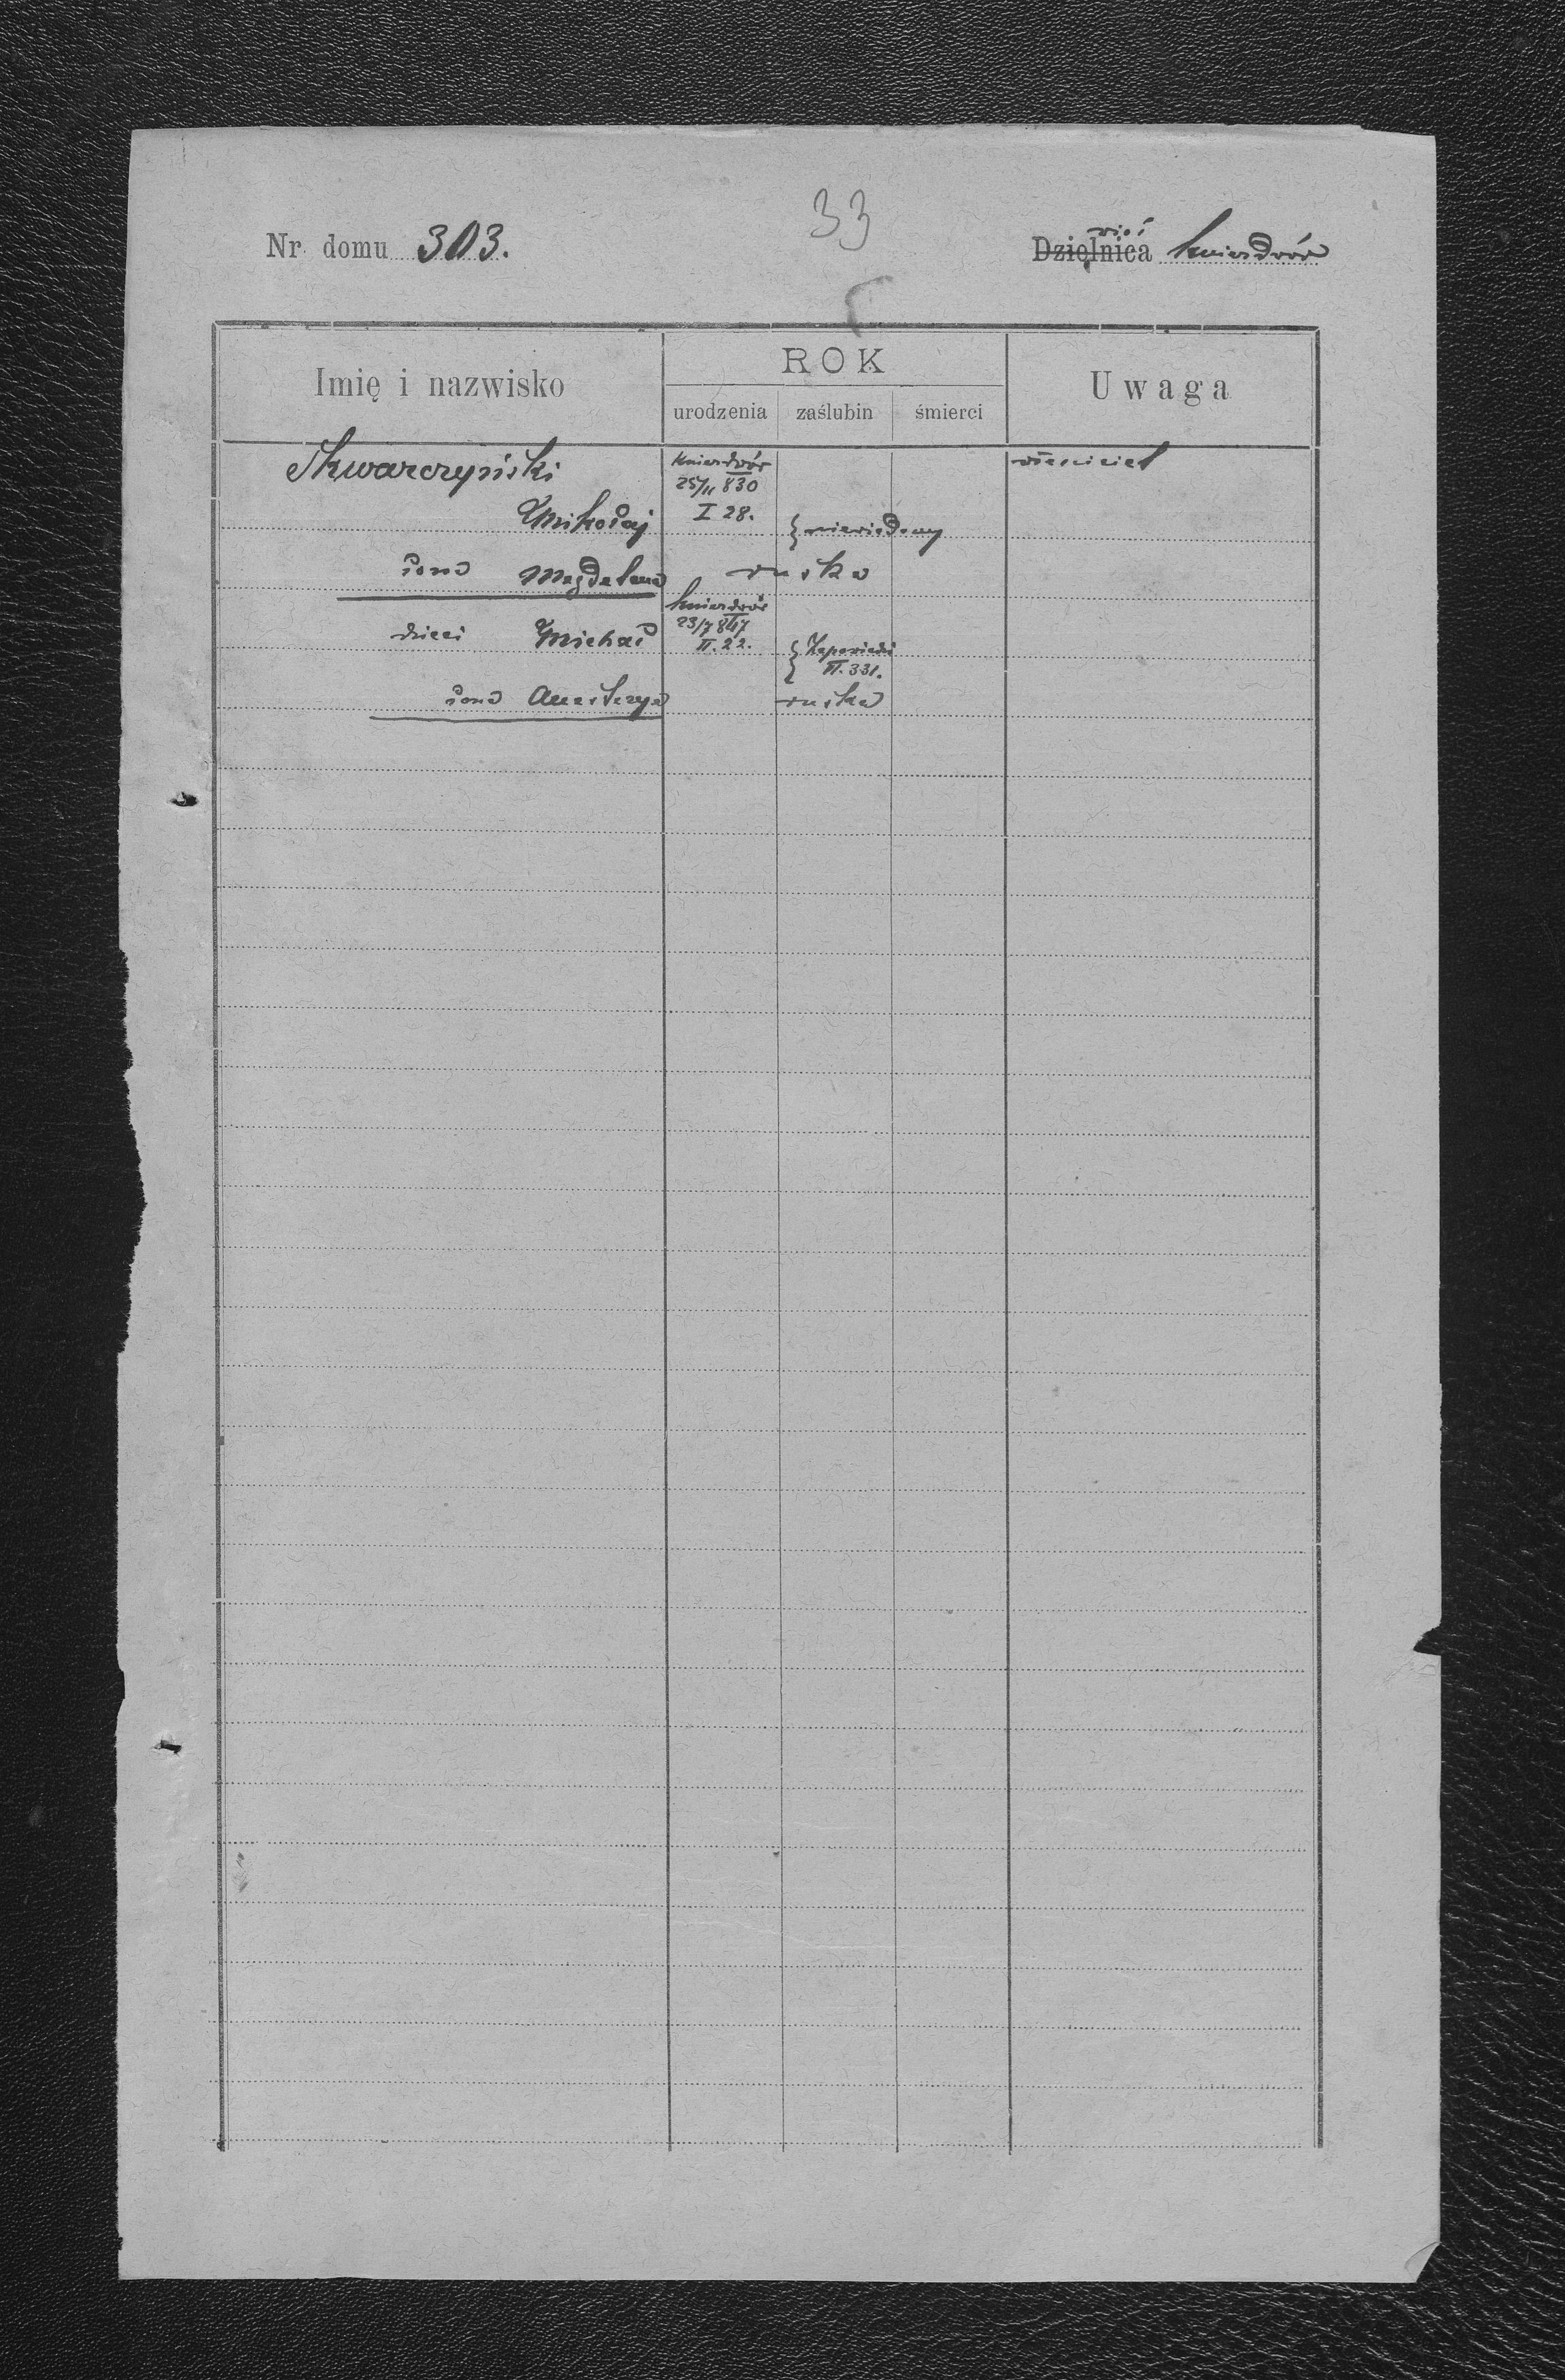 33
Nr. domu 303.
wieś
Dzielnica Kniesdwór
Imię i nazwisko
ROK
urodzenia zaślubin śmierci
Uwaga
Skwarczyński
Kniesdwór
25/11 830
I 28.
Mikołaj
niewiadomy
żona Magdalena ruska
dzieci Michał
Kniesdwór
23/7 847
II. 22.
Zapowiedzi
II. 331.
żona Anastazya ruska